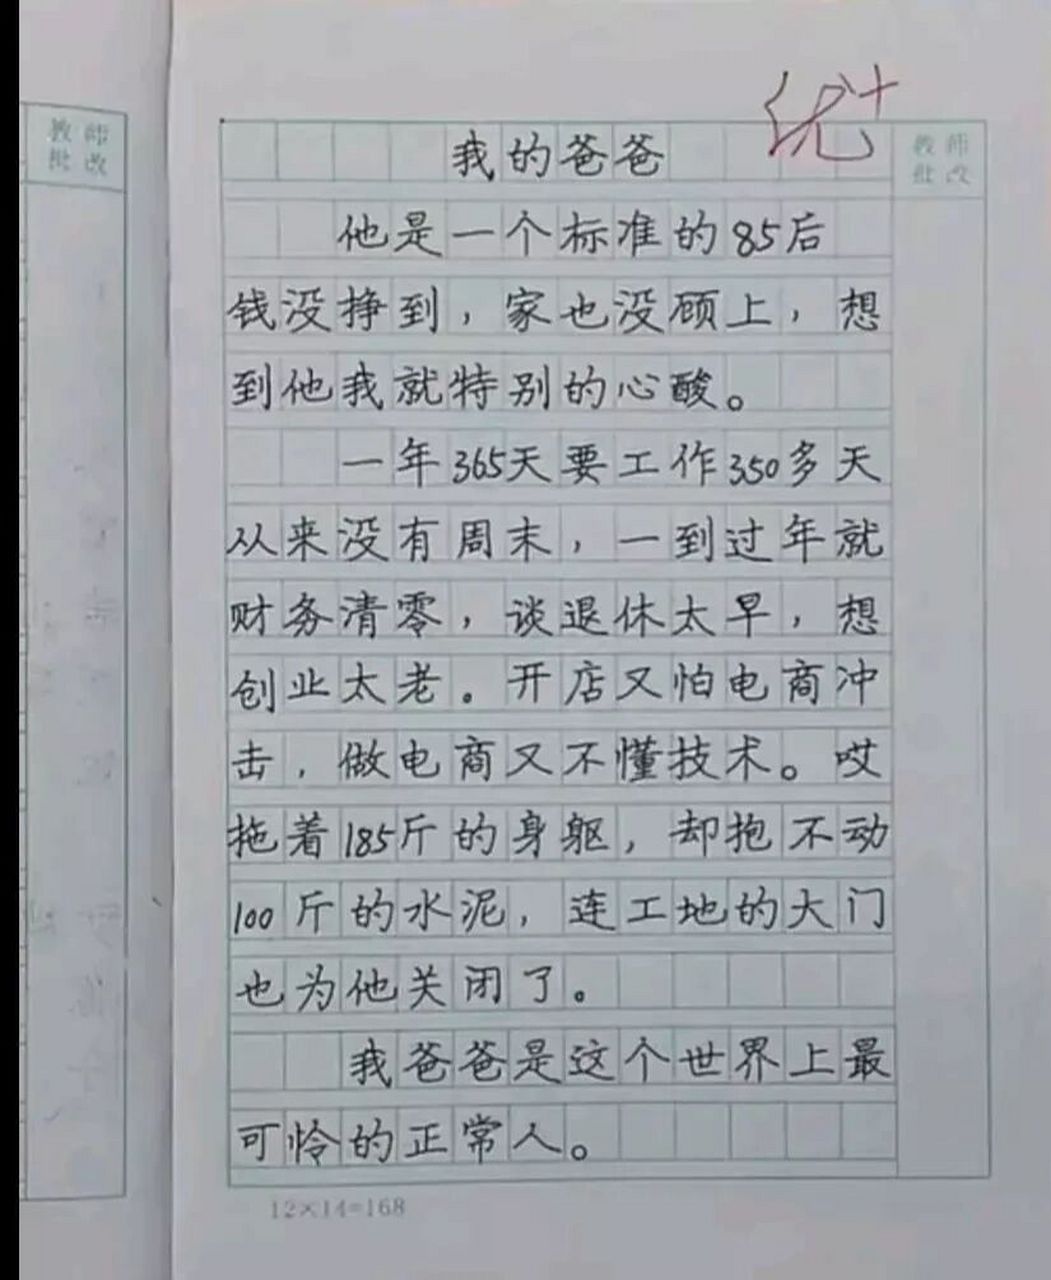 教师
批改
优+
我的爸爸
教师
批改
他是一个标准的85后
钱没挣到，家也没顾上，想
到他我就特别的心酸。
一年365天要工作350多天
从来没有周末，一到过年就
财务清零，谈退休太早，想
创业太老。开店又怕电商冲
击，做电商又不懂技术。哎
拖着185斤的身躯，却抱不动
100斤的水泥，连工地的大门
也为他关闭了。
我爸爸是这个世界上最
可怜的正常人。
12×14=168